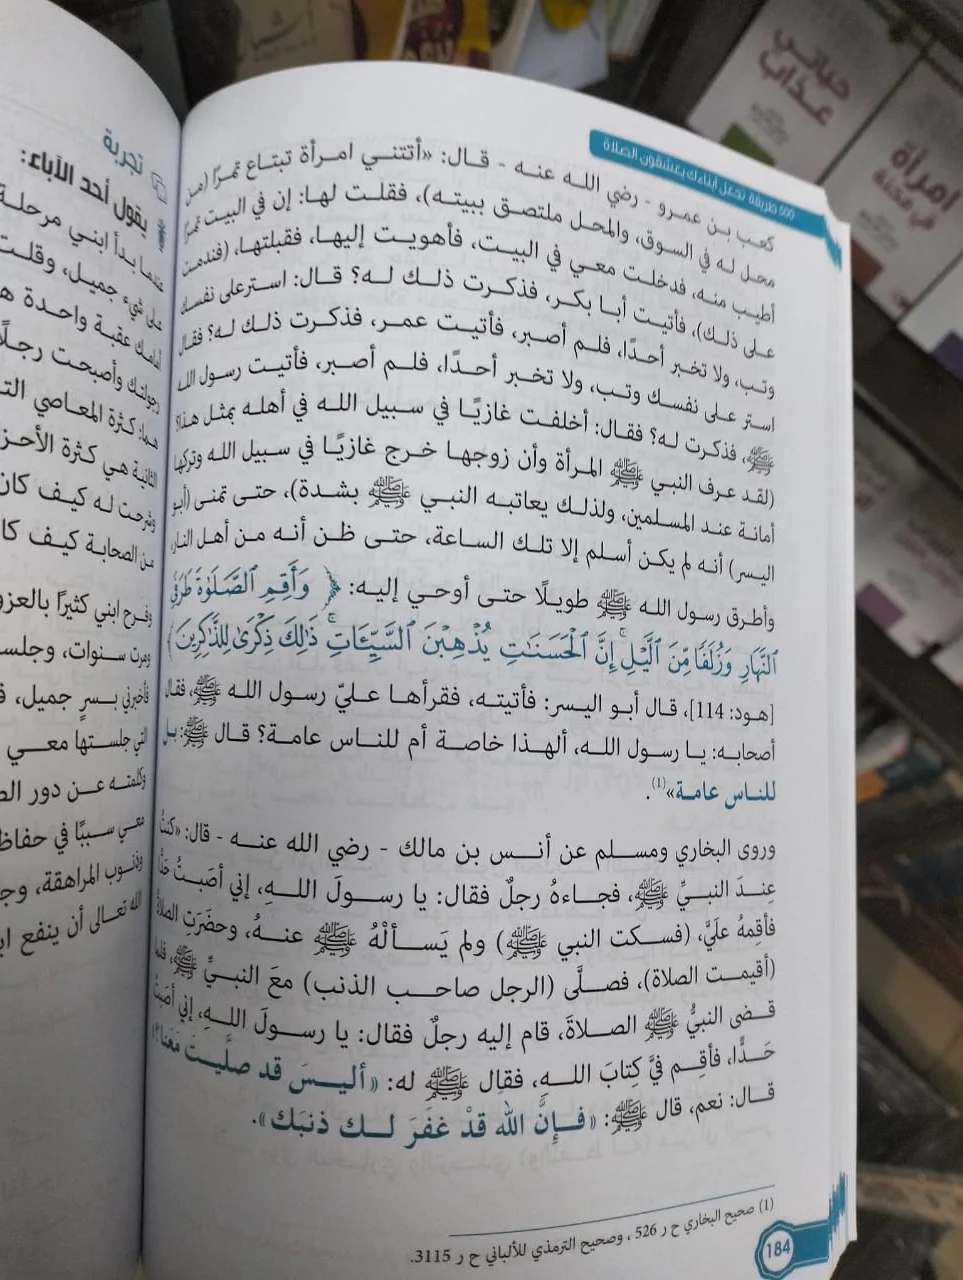 500 طريقة تجعل أبناءك يعشقون الصلاة
كعب بن عمرو - رضي الله عنه - قال: «أتتني امرأة تبتاع تمرًا (من
محل له في السوق، والمحل ملتصق ببيته)، فقلت لها: إن في البيت تمرًا
أطيب منه، فدخلت معي في البيت، فأهويت إليها، فقبلتها، (فندمت
على ذلك)، فأتيت أبا بكر، فذكرت ذلك له؟ قال: استرعلى نفسك
وتب، ولا تخبر أحدًا، فلم أصبر، فأتيت عمر، فذكرت ذلك له؟ فقال
استر على نفسك وتب، ولا تخبر أحدًا، فلم أصبر، فأتيت رسول الله
ﷺ، فذكرت له؟ فقال: أخلفت غازيًا في سبيل الله في أهله بمثل هذا؟
(لقد عرف النبي ﷺ المرأة وأن زوجها خرج غازيًا في سبيل الله وتركها
أمانة عند المسلمين، ولذلك يعاتبه النبي ﷺ بشدة)، حتى تمنى (أبو
اليسر) أنه لم يكن أسلم إلا تلك الساعة، حتى ظن أنه من أهل النار،
وأطرق رسول الله ﷺ طويلًا حتى أوحي إليه: ﴿وَأَقِمِ ٱلصَّلَوٰةَ طَرَفَيِ
ٱلنَّهَارِ وَزُلَفًا مِّنَ ٱلَّيْلِ ۚ إِنَّ ٱلْحَسَنَٰتِ يُذْهِبْنَ ٱلسَّيِّئَاتِ ۚ ذَٰلِكَ ذِكْرَىٰ لِلذَّٰكِرِينَ﴾
[هود: 114]، قال أبو اليسر: فأتيته، فقرأها عليّ رسول الله ﷺ، فقال
أصحابه: يا رسول الله، ألهذا خاصة أم للناس عامة؟ قال ﷺ: بل
للناس عامة»(1).
وروى البخاري ومسلم عن أنس بن مالك - رضي الله عنه - قال: «كنتُ
عِندَ النبيِّ ﷺ، فجاءهُ رجلٌ فقال: يا رسولَ اللهِ، إني أصَبتُ حَدًّا
فأقِمهُ علَيَّ، (فسكَت النبي ﷺ) ولم يَسألْهُ ﷺ عنهُ، وحضَرَتِ الصلاةُ
(أقيمت الصلاة)، فصلَّى (الرجل صاحب الذنب) معَ النبيِّ ﷺ، فلما
قضى النبيُّ ﷺ الصلاةَ، قام إليه رجلٌ فقال: يا رسولَ اللهِ، إني أصَبتُ
حَدًّا، فأقِم فيَّ كِتابَ اللهِ، فقال ﷺ له: «أليسَ قد صلَّيتَ مَعَنا؟»
قال: نعم، قال ﷺ: «فإنَّ اللهَ قدْ غفَرَ لك ذنبَك».
(1) صحيح البخاري ح ر 526 ، وصحيح الترمذي للألباني ح ر 3115.
184
تجربة
يقول أحد الآباء:
عندما بدأ ابني مرحلة
على شيء جميل، وقلت
أمامك عقبة واحدة
رجولتك وأصبحت رجلًا
هما: كثرة المعاصي
الثانية هي كثرة
وشرحت له كيف كان
من الصحابة كيف
وفرح ابني كثيرًا
ومرت سنوات، وجلس
فأخبرني بسر جميل،
التي جلستها معي
وكلمته عن دور
معي سببًا في حفاظ
وذنوب المراهقة،
الله تعالى أن ينفع
حياتي
عذاب
امرأة
في محنة